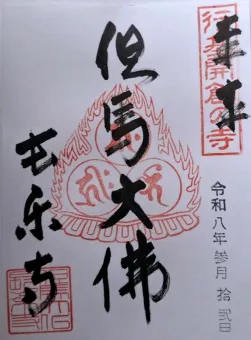 奉拝
行基開創の寺
令和八年参月拾弐日
但馬大佛
長楽寺